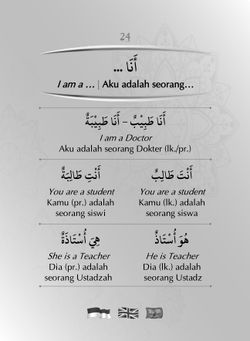 24
أَنَا ...
I am a ... | Aku adalah seorang...
أَنَا طَبِيْبٌ – أَنَا طَبِيْبَةٌ
I am a Doctor
Aku adalah seorang Dokter (lk./pr.)
أَنْتَ طَالِبٌ
You are a student
Kamu (lk.) adalah
seorang siswa
أَنْتِ طَالِبَةٌ
You are a student
Kamu (pr.) adalah
seorang siswi
هُوَ أُسْتَاذٌ
He is Teacher
Dia (lk.) adalah
seorang Ustadz
هِيَ أُسْتَاذَةٌ
She is a Teacher
Dia (pr.) adalah
seorang Ustadzah